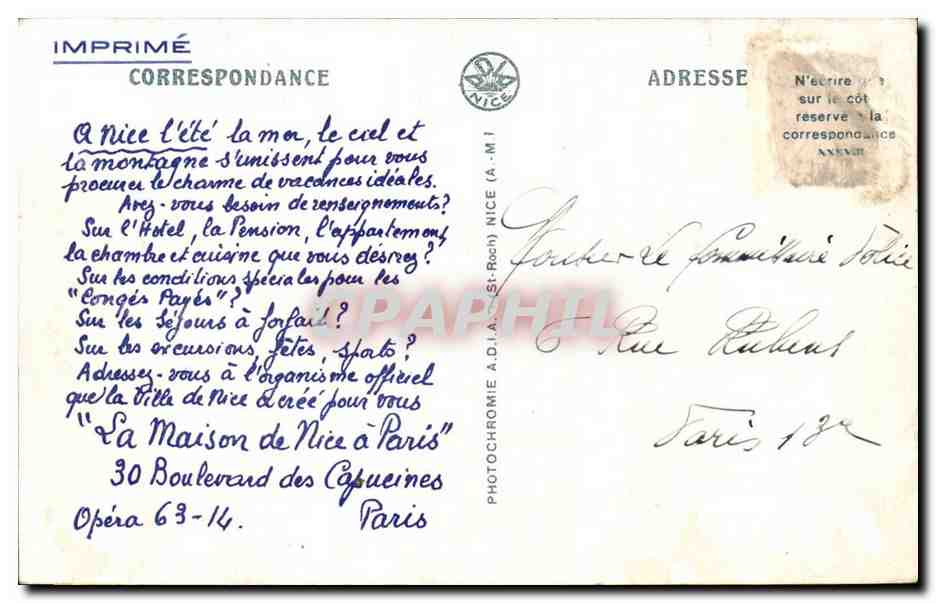 IMPRIMÉ
CORRESPONDANCE
ADIA
NICE
ADRESSE
N'écrire que
sur le côté
réservé à la
correspondance
A Nice l'été la mer, le ciel et
la montagne s'unissent pour vous
procurer le charme de vacances idéales.
Avez-vous besoin de renseignements?
Sur l'Hotel, la Pension, l'appartement,
la chambre et cuisine que vous désirez?
Sur les conditions spéciales pour les
"Congés Payés"?
Sur les Séjours à forfait?
Sur les excursions, fêtes, sports?
Adressez-vous à l'organisme officiel
que la Ville de Nice a créé pour vous
"La Maison de Nice à Paris"
30 Boulevard des Capucines
Opéra 63-14. Paris
PHOTOCHROMIE A.D.I.A. (St-Roch) NICE (A.-M.)
CPAPHIL
Le Commissaire Police
6 Rue Rubens
Paris 13e